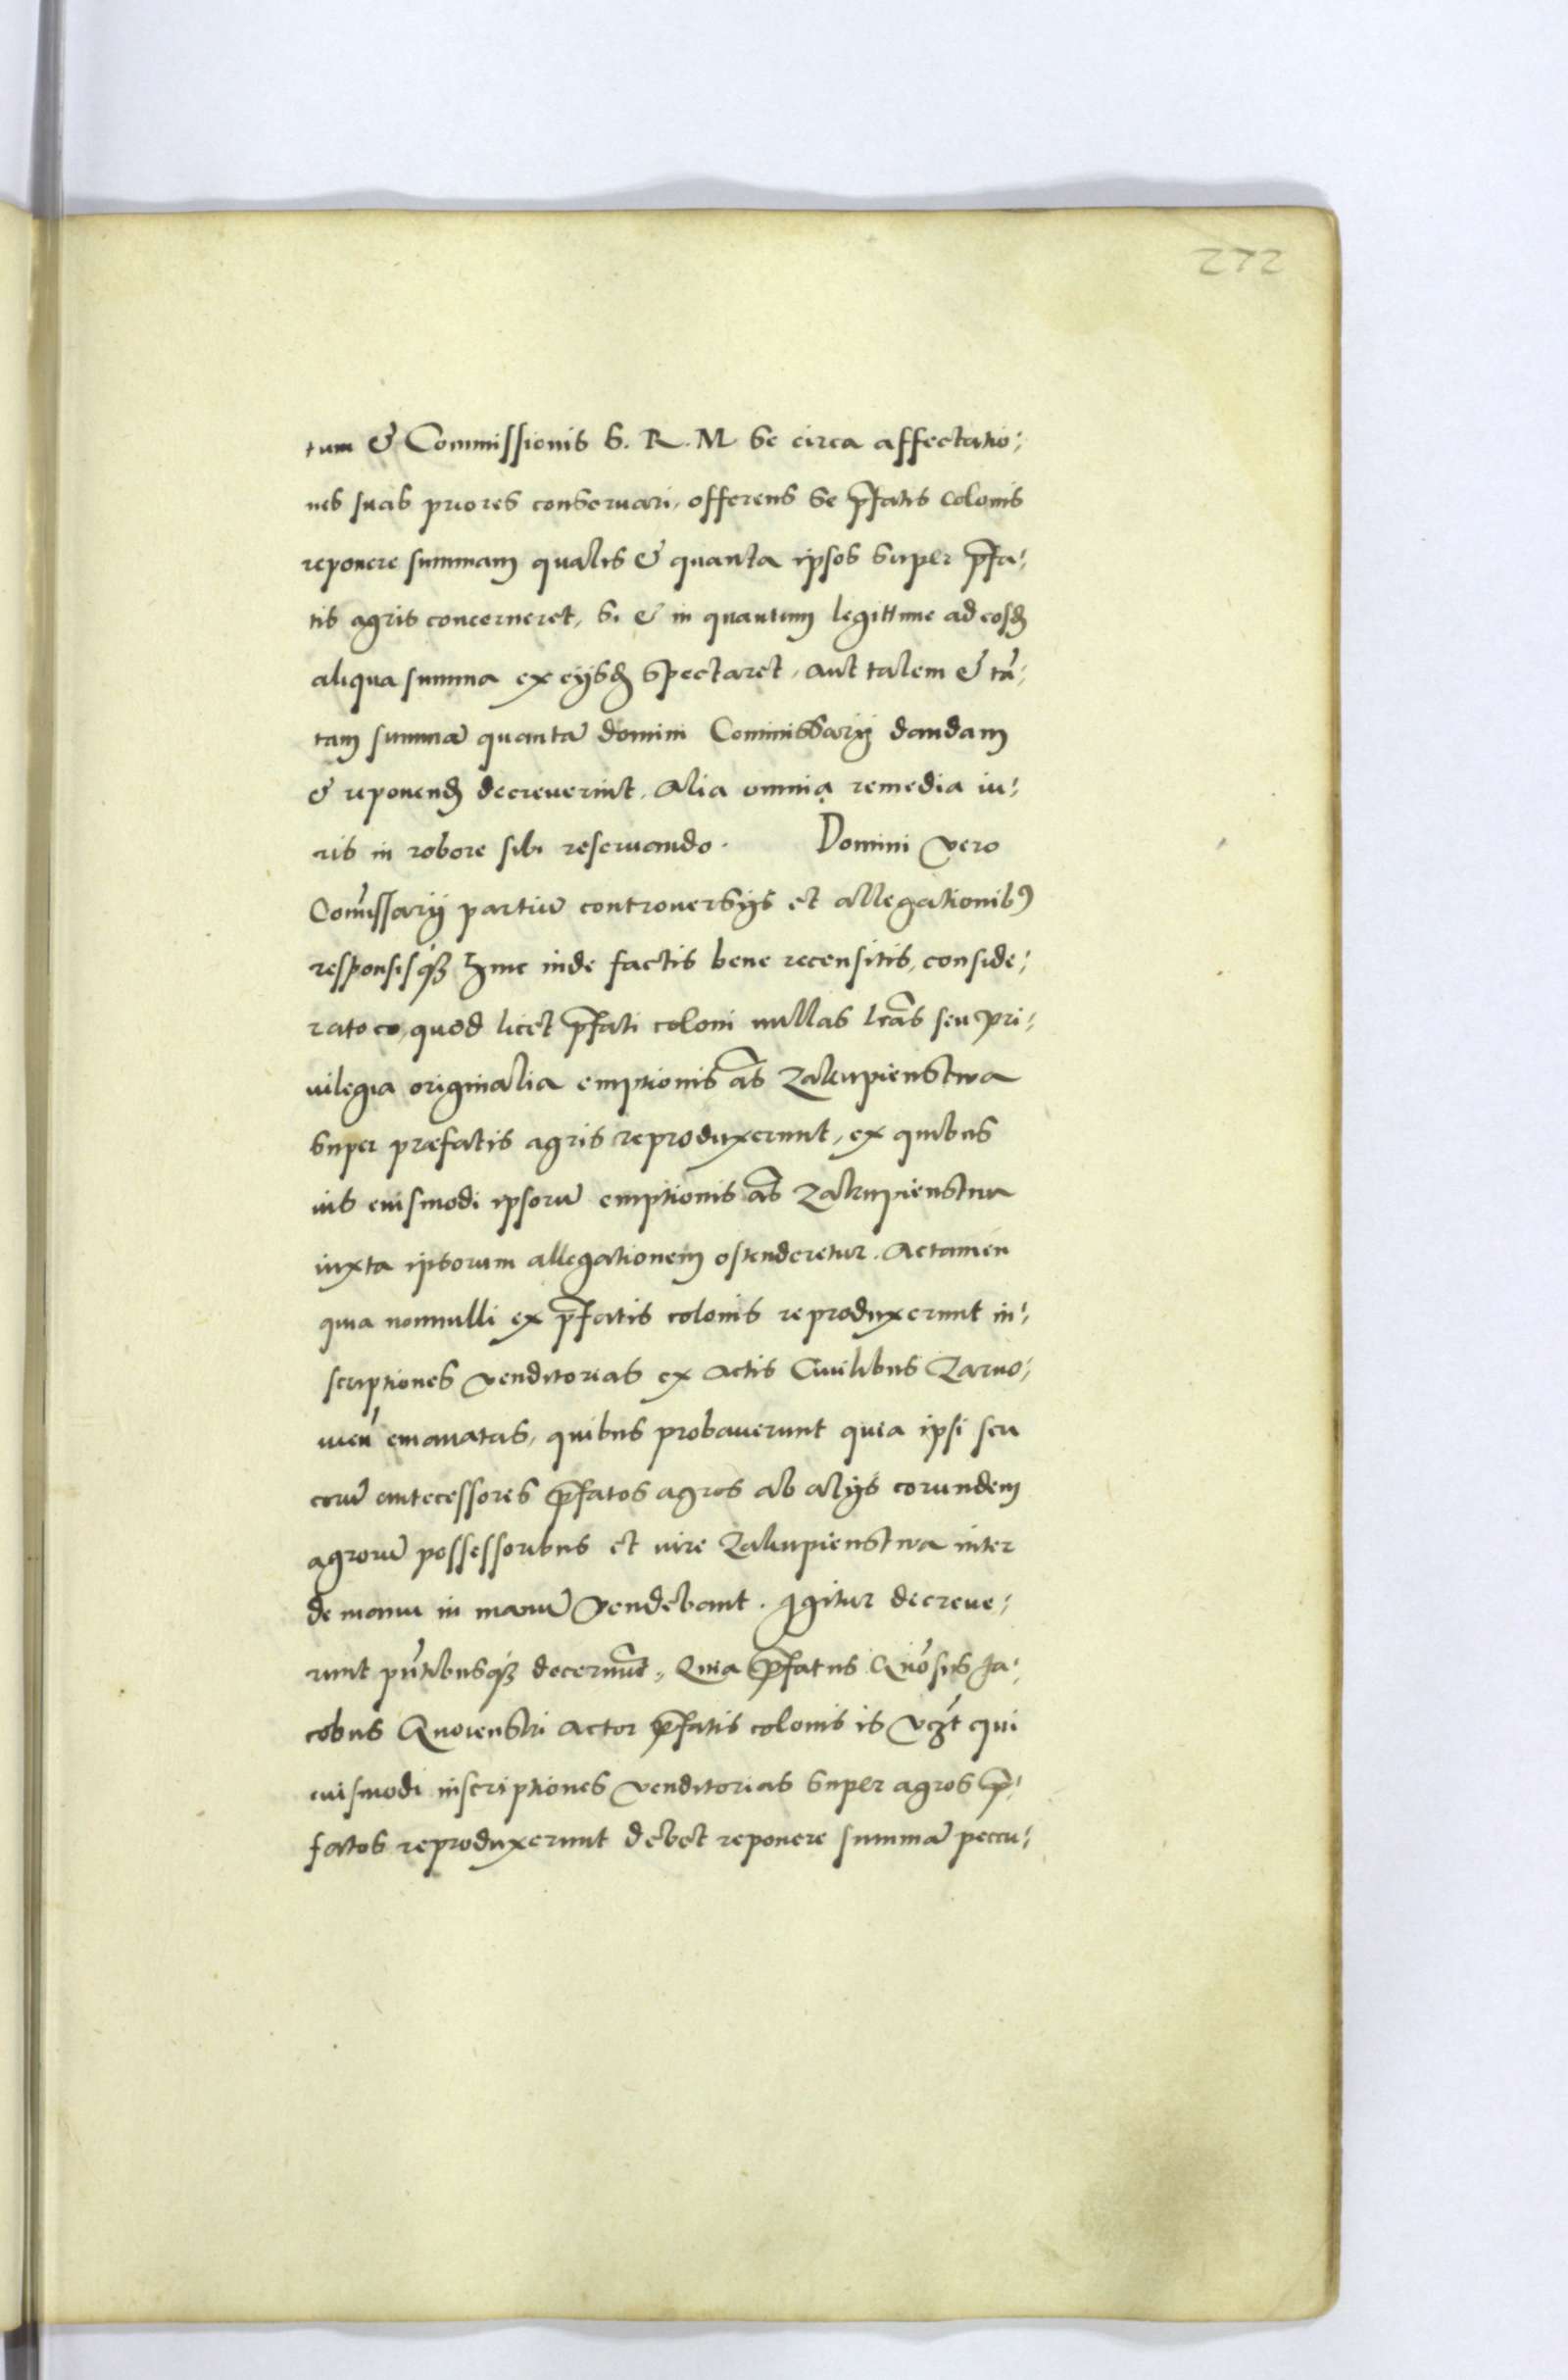 272
tum & Commissionis S. R. M. se circa affectatio:
nes suas priores conseruari, offerens se p̄fatis colonis
reponere summam qualis & quanta ipsos super p̄fa:
tis agris concerneret, si & in quantum legittime ad eosd
aliqua summa ex eijsd spectaret, aut talem & tā:
tam summā quantā domini Commissarij dandam
& reponend decreuerint, Alia omnia remedia iu:
ris in robore sibi reseruando. Domini vero
Com̄issarij partiū controuersijs et allegationibꝰ
responsisqꝫ hinc inde factis bene recensitis, conside:
rato eo, quod licet p̄fati coloni nullas lr̄as seu pri:
uilegia originalia emptionis al̄s Zakupienstwa
super præfatis agris reproduxerunt, ex quibus
ius euismodi ipsorū emptionis al̄s Zakupienstwa
iuxta ipsorum allegationem ostenderetur. Actamen
quia nonnulli ex p̄fatis colonis reproduxerunt in:
scriptiones venditorias ex actis Ciuilibus Zarno:
uien̄ emanatas, quibus probauerunt quia ipsi seu
eorū antecessores p̄fatos agros ab alijs eorundem
agrorū possessoribus et iure Zakupienstwa inter
de manu in manū vendebant. Igitur decreue:
runt pn̄tibusqꝫ decernūt, Quia p̄fatus Gn̄osus Ja:
cobus Gnoienski actor p̄fatis colonis is vcꝫt qui
euismodi inscriptiones venditorias super agros p̄:
fatos reproduxerunt debet reponere summā peccu: